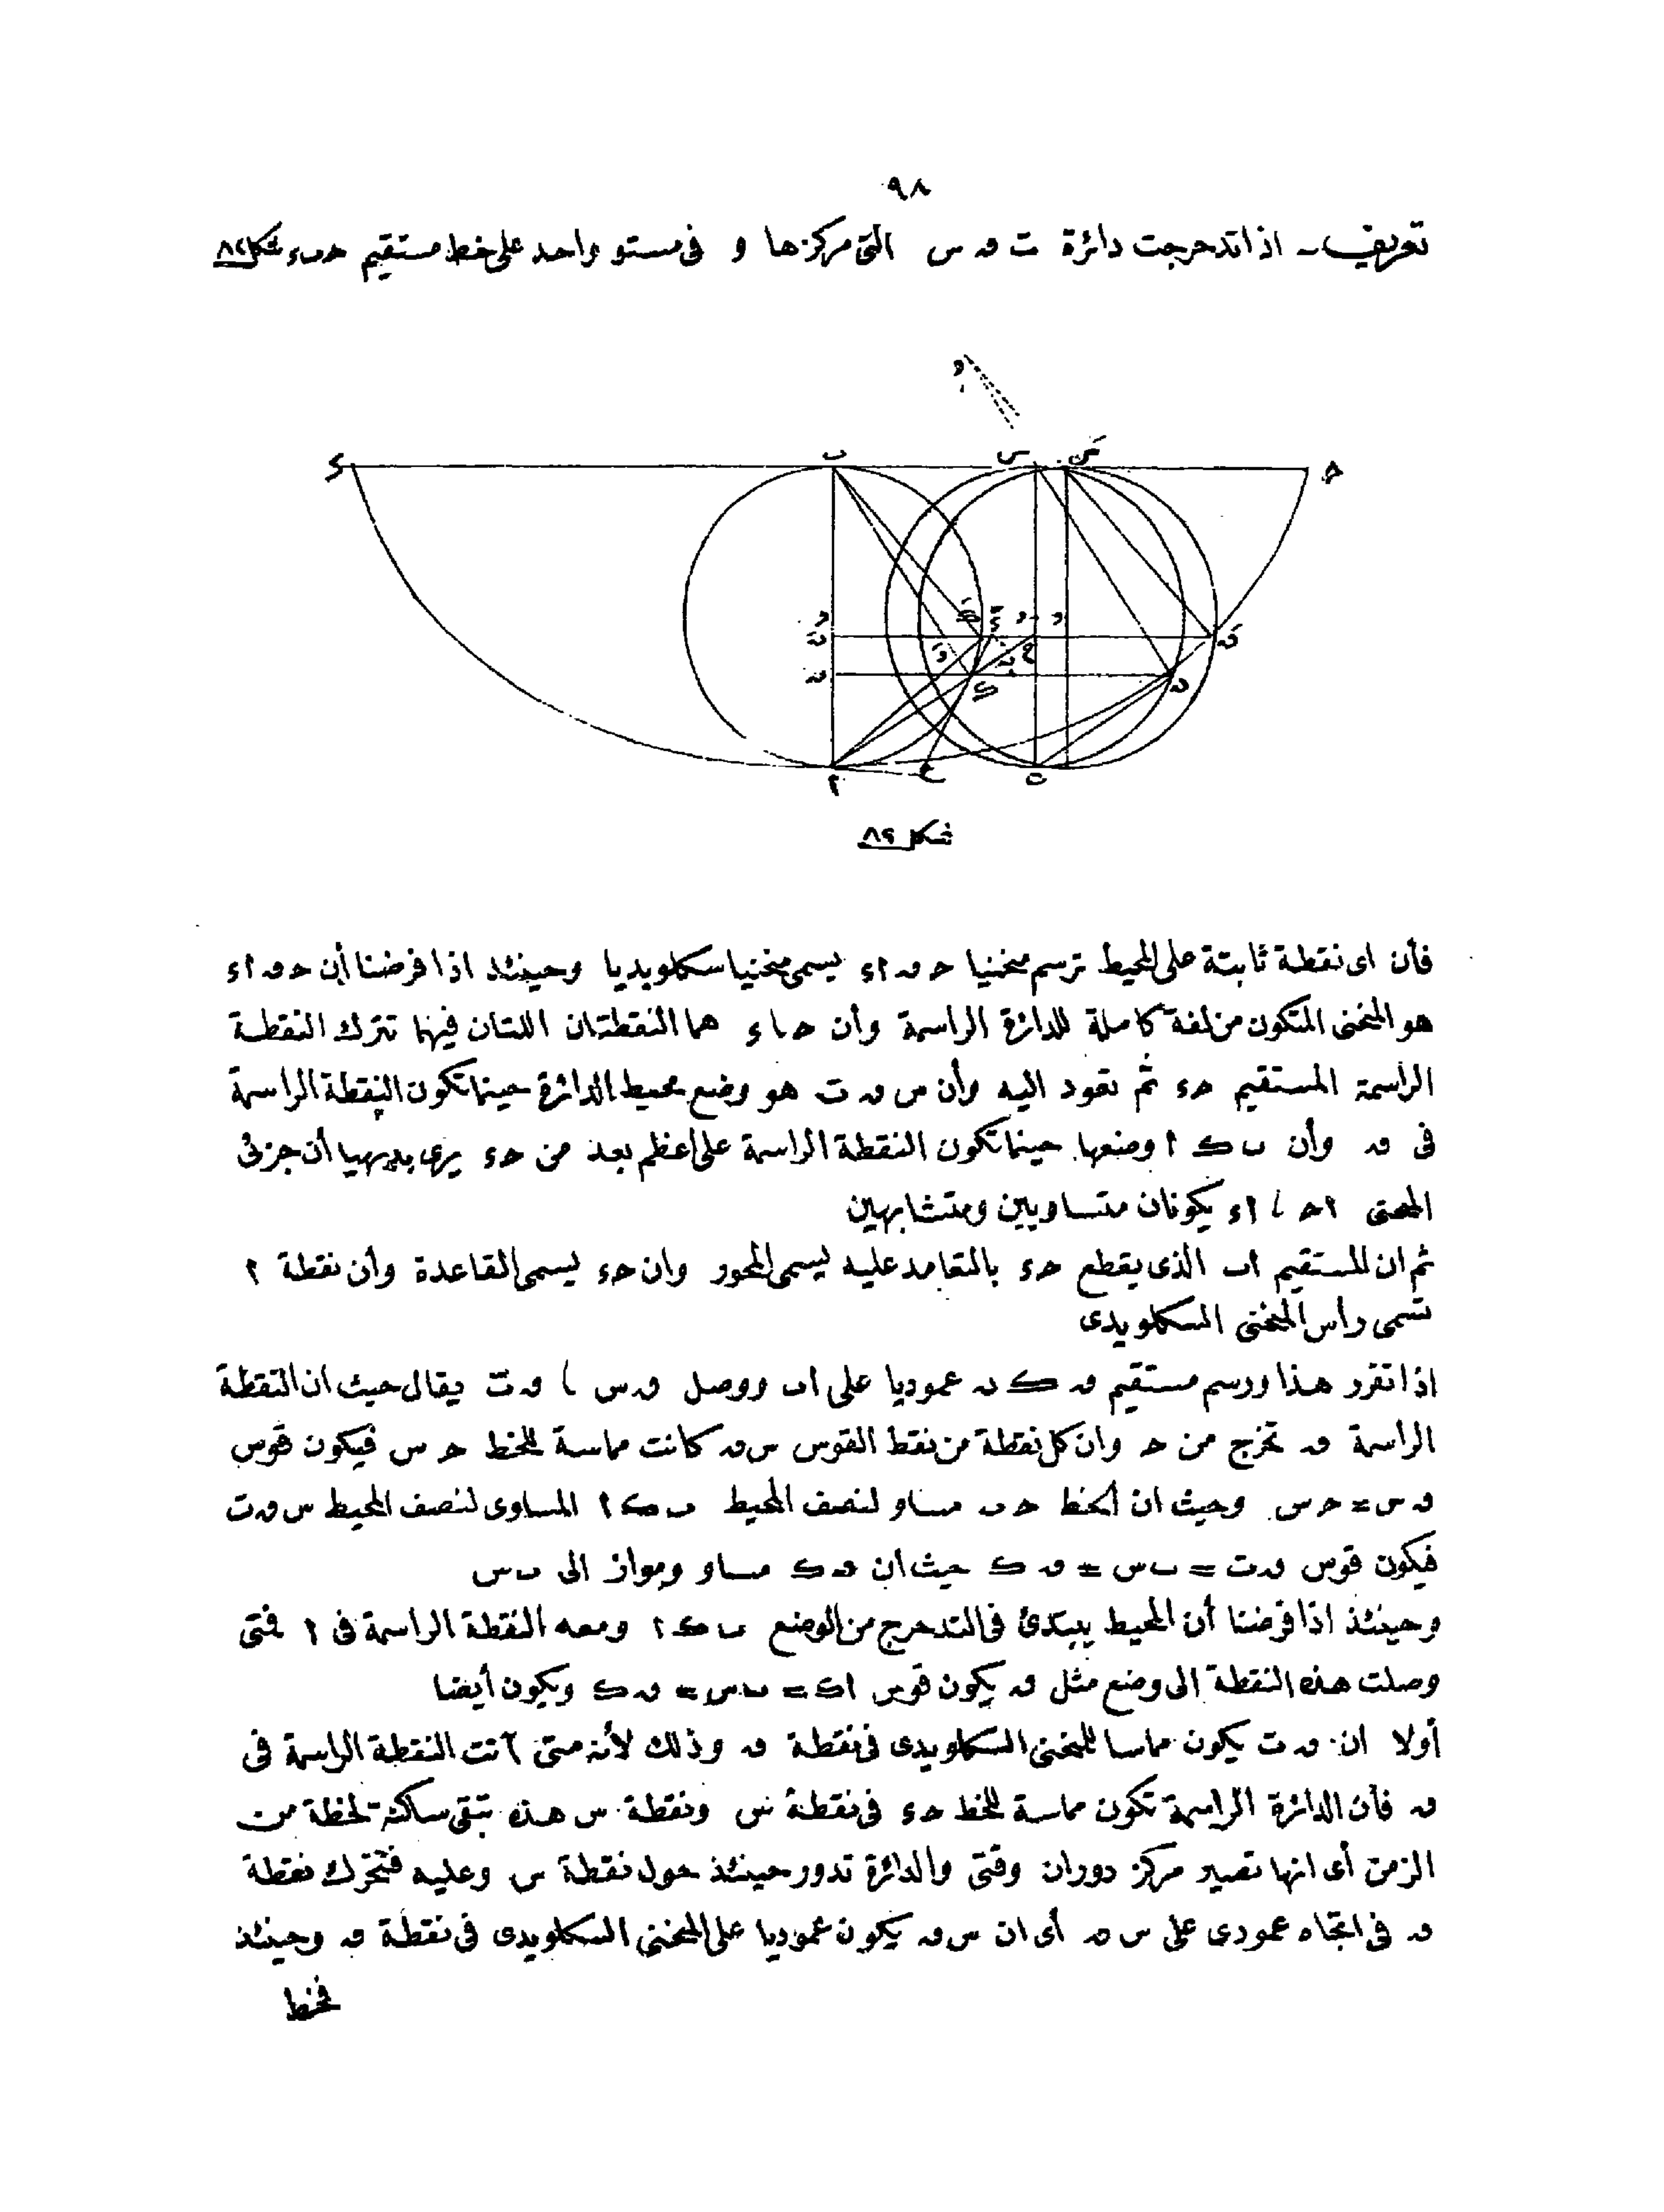 ٩٨
تعريف ـ اذا تدحرجت دائرة ت ص س التى مركزها و فى مستو واحد على خط مستقيم حىء شكل ٨٢
شكل ٨٢
فأن اى نقطة ثابتة على المحيط ترسم منحنيا ح ص اء يسمى منحنيا سكلويديا وحينئذ اذا فرضنا أن ح ص اء
هو المنحنى المتكون من لفة كاملة للدائرة الراسمة وأن ح ا ء هما النقطتان اللتان فيهما تترك النقطة
الراسمة المستقيم حء ثم تعود اليه وأن س ص ت هو وضع محيط الدائرة حينما تكون النقطة الراسمة
فى ص وأن ب ك ا وضعها حينما تكون النقطة الراسمة على أعظم بعد من حء يرى بديهيا أن جزئى
المنحنى احـ ا اء يكونان متساويين ومتشابهين
ثم ان المستقيم اب الذى يقطع حء بالتعامد عليه يسمى المحور وان حء يسمى القاعدة وأن نقطة ا
تسمى رأس المنحنى السكلويدى
اذا تقرر هذا ورسم مستقيم ص ك ں عموديا على اب ووصل ص س ا ص ت يقال حيث ان النقطة
الراسمة ص تخرج من ح وان كل نقطة من نقط القوس س ص كانت مماسة للخط ح س فيكون قوس
ص س = ح س وحيث ان الخط ح ب مساو لنصف المحيط ب ك ا المساوى لنصف المحيط س ص ت
فيكون قوس ص ت = ب س = ص ك حيث ان ص ك مساو ومواز الى ب س
وحينئذ اذا فرضنا أن المحيط يبتدئ فى التدحرج من الوضع ب ك ا ومعه النقطة الراسمة فى ا فمتى
وصلت هذه النقطة الى وضع مثل ص يكون قوس اك = ب س = ص ك ويكون أيضا
أولا ان ص ت يكون مماسا للمنحنى السكلويدى فى نقطة ص وذلك لأنه متى آنت النقطة الراسمة فى
ص فأن الدائرة الراسمة تكون مماسة للخط حء فى نقطة س ونقطة س هذه تبقى ساكنة لحظة من
الزمن أى انها تصير مركز دوران وقتى والدائرة تدور حينئذ حول نقطة س وعليه فتتحرك نقطة
ص فى اتجاه عمودى على س ص أى ان س ص يكون عموديا على المنحنى السكلويدى فى نقطة ص وحينئذ
فخط